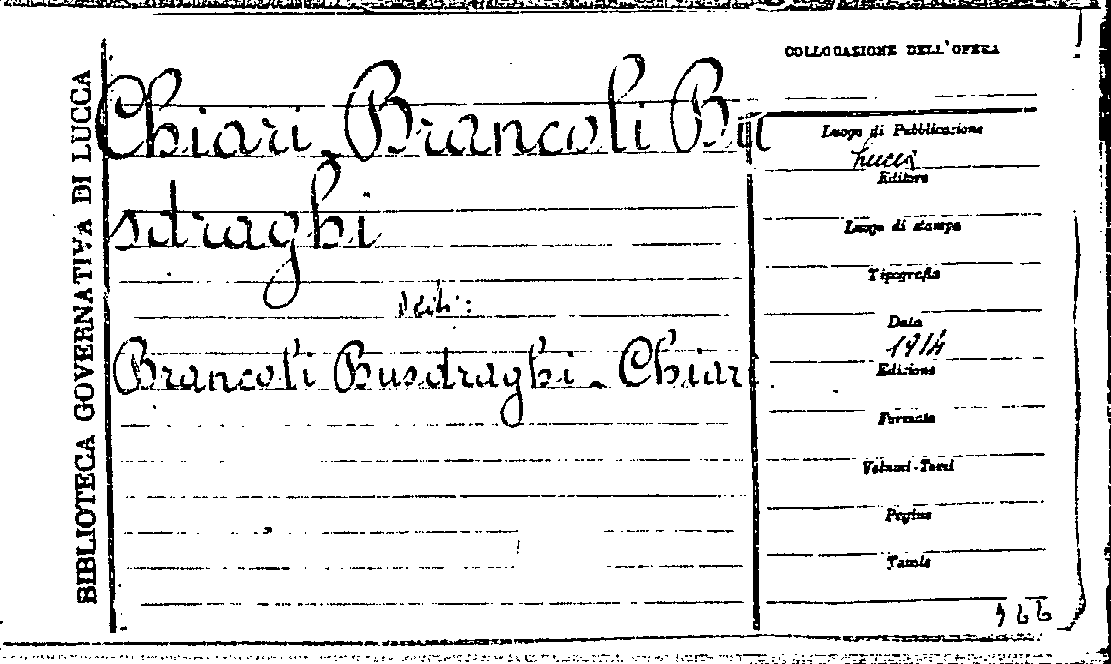 BIBLIOTECA GOVERNATIVA DI LUCCA
Chiari-Brancoli Bu
sdraghi
Vedi:
Brancoli Busdraghi-Chiari
COLLOCAZIONE DELL'OPERA
Luogo di Pubblicazione
Lucca
Editore
Luogo di stampa
Tipografia
Data
1914
Edizione
Formato
Volumi-Tomi
Pagine
Tavole